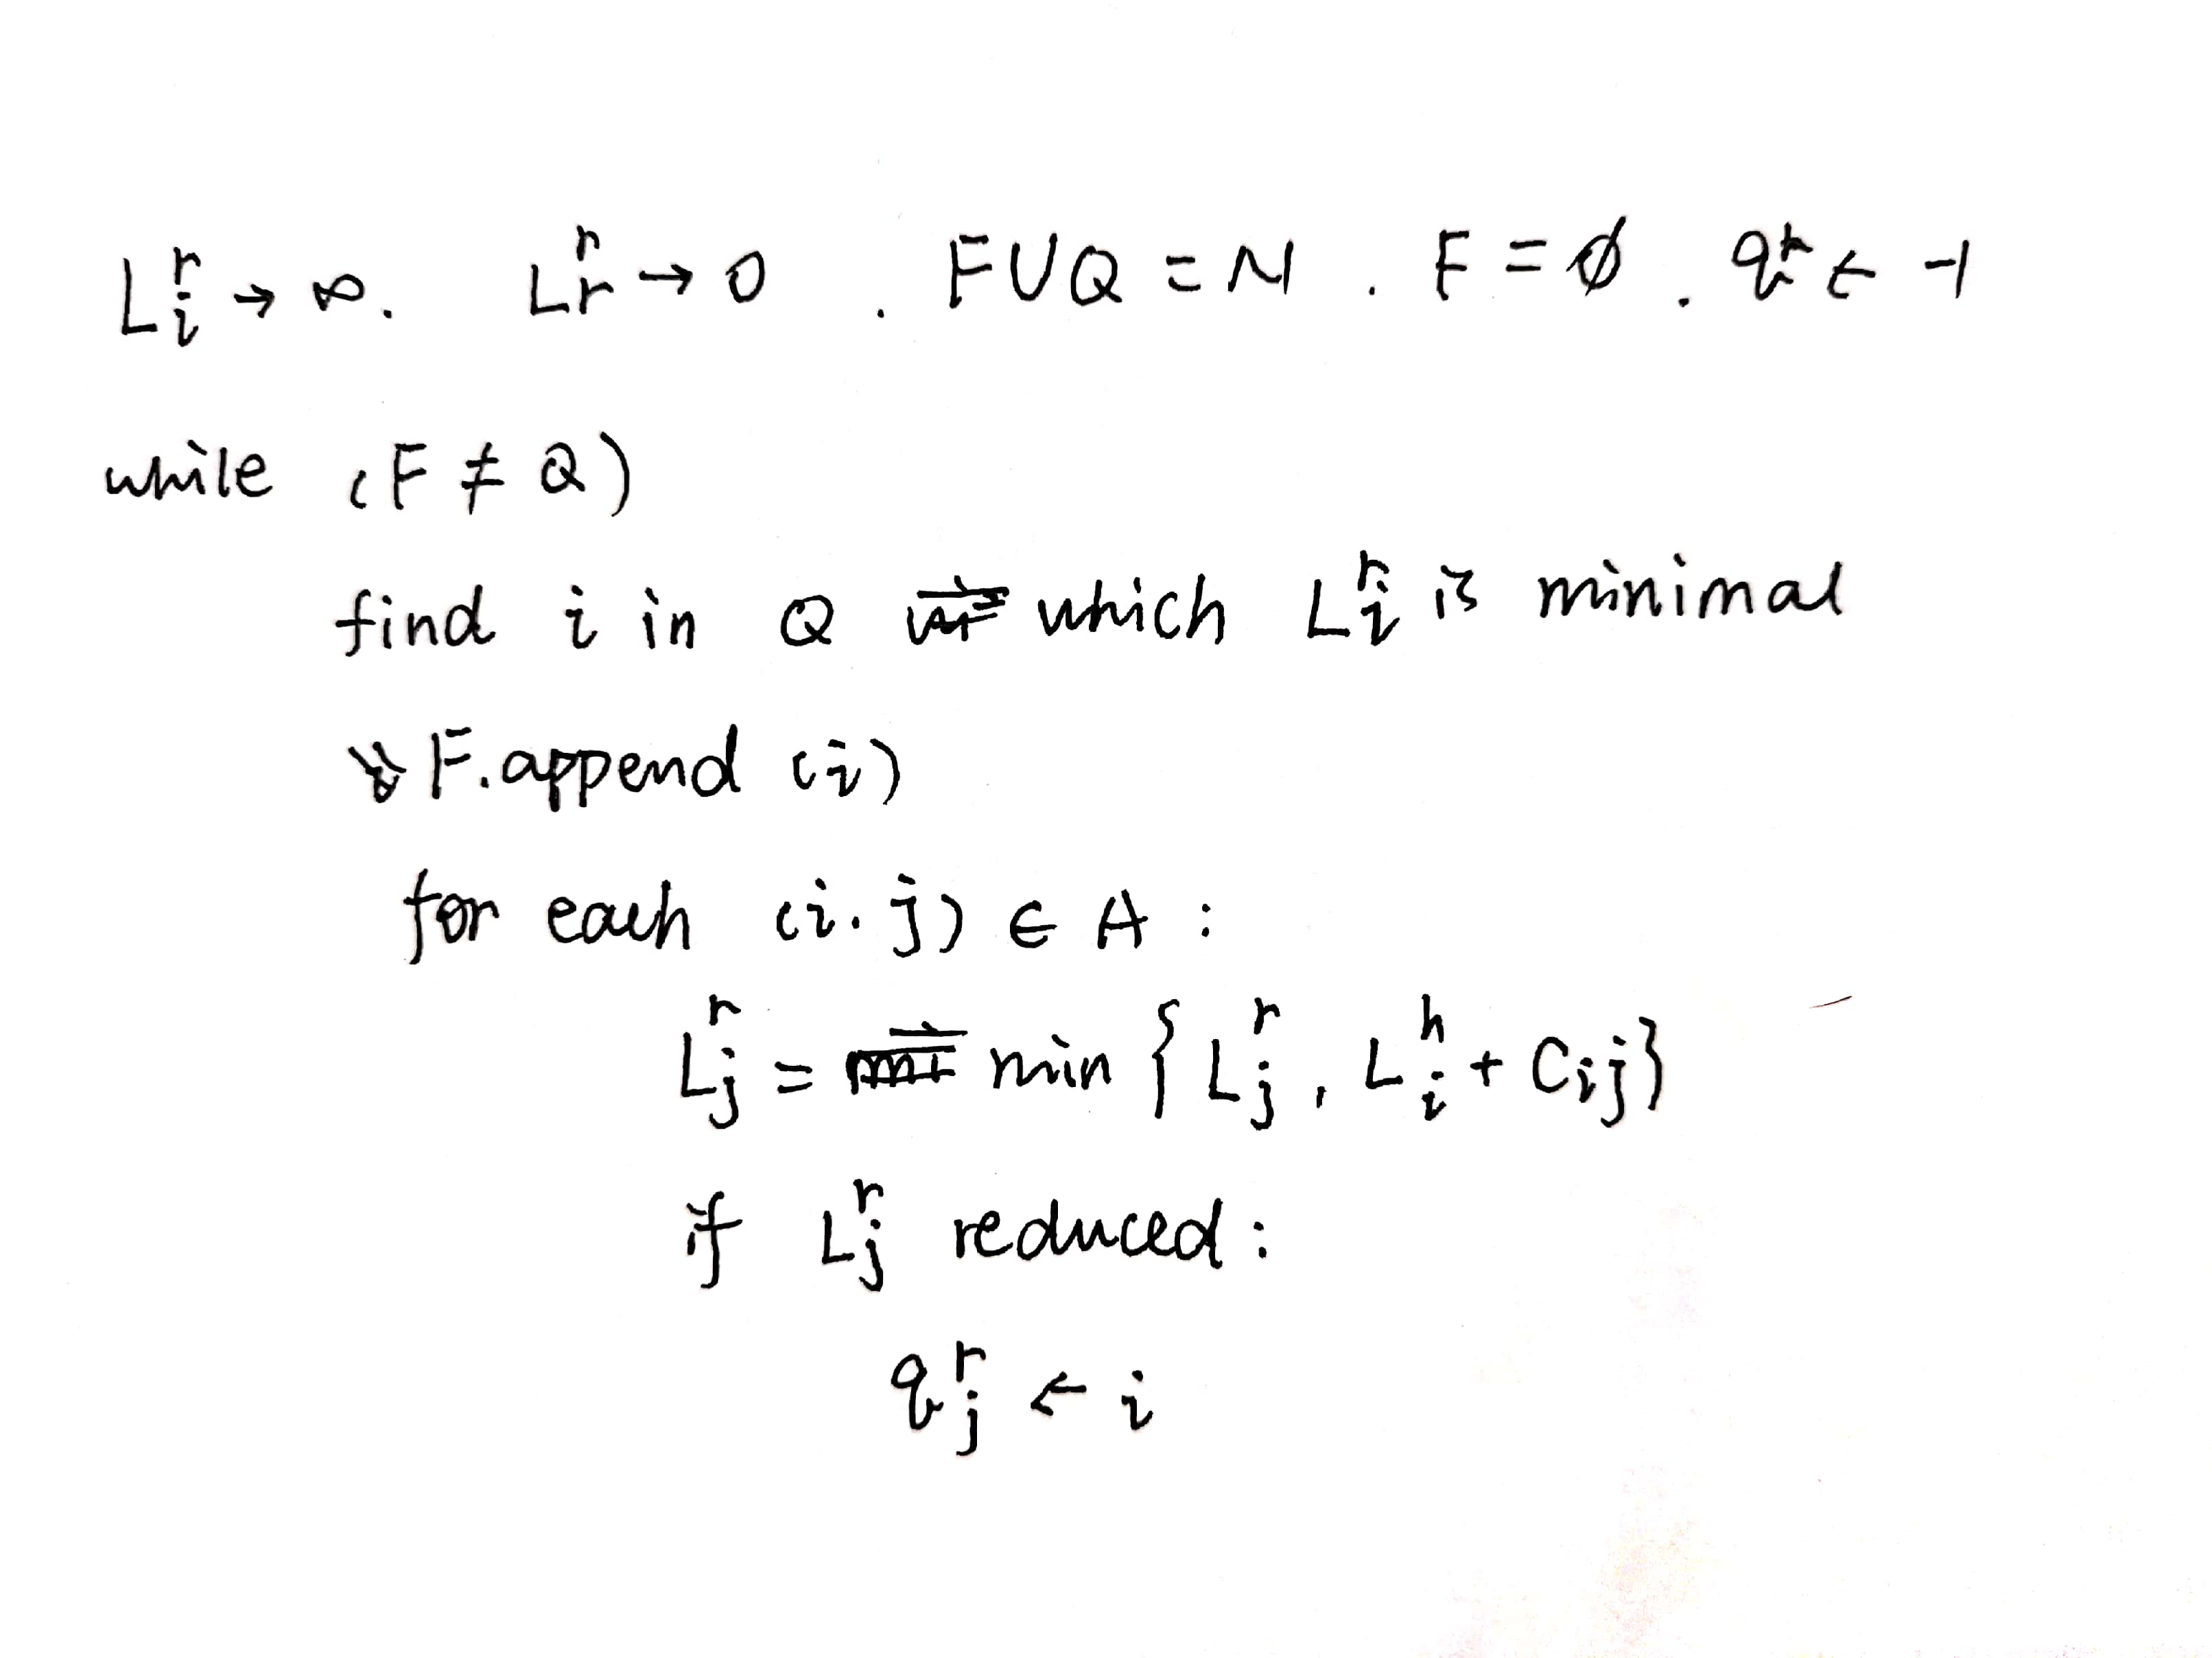 L_i^r → ∞. L_r^r → 0 . F∪Q = N . F = ∅ . q^r ← -1
while (F ≠ Q)
find i in Q which L_i^r is minimal
F.append (i)
for each (i.j) ∈ A :
L_j^r = min { L_j^r , L_i^h + C_ij }
if L_j^r reduced :
q_j^r ← i